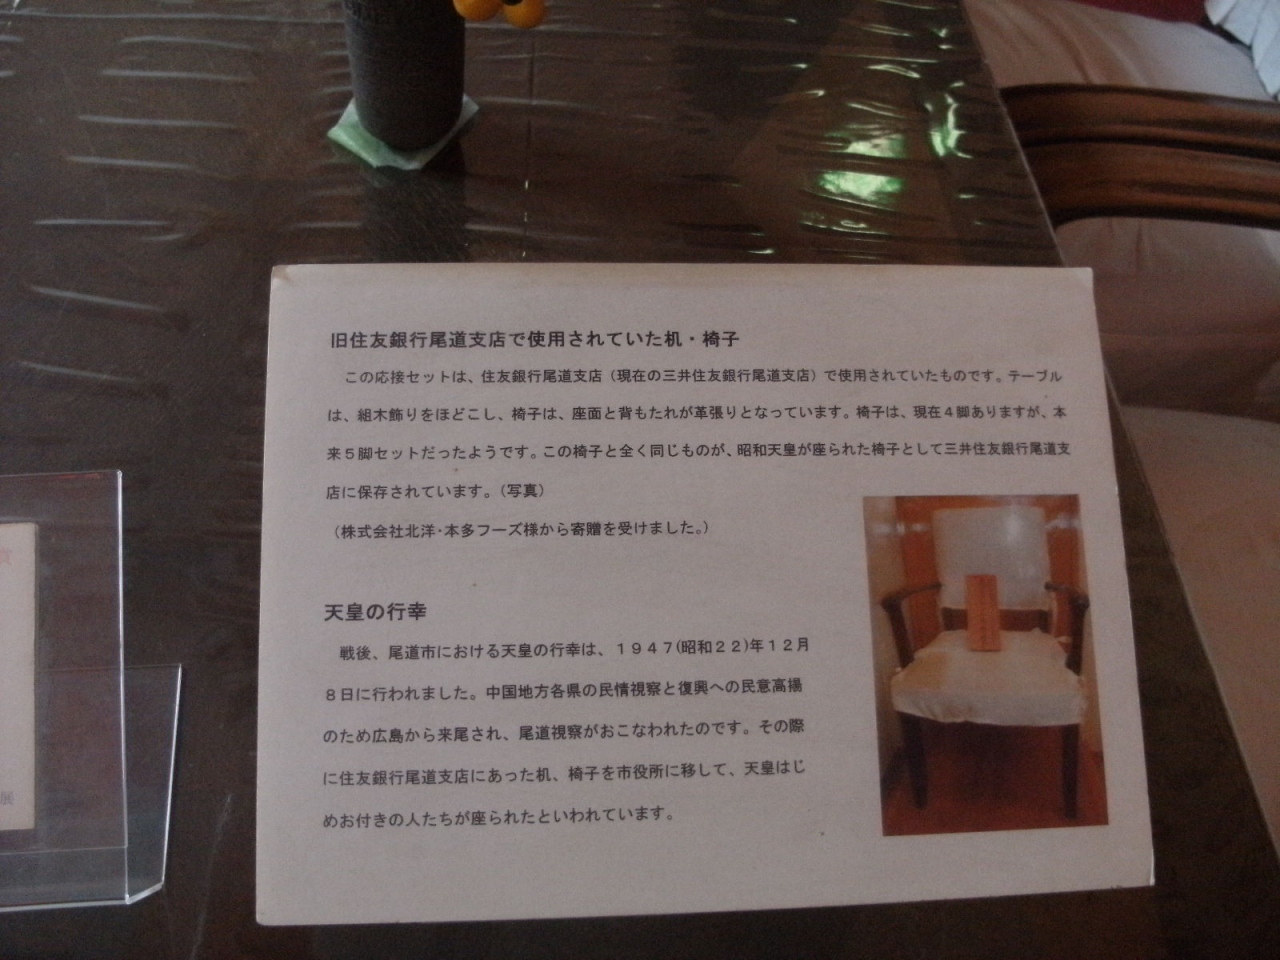 旧住友銀行尾道支店で使用されていた机・椅子
この応接セットは、住友銀行尾道支店（現在の三井住友銀行尾道支店）で使用されていたものです。テーブル
は、組木飾りをほどこし、椅子は、座面と背もたれが革張りとなっています。椅子は、現在４脚ありますが、本
来５脚セットだったようです。この椅子と全く同じものが、昭和天皇が座られた椅子として三井住友銀行尾道支
店に保存されています。（写真）
（株式会社北洋・本多フーズ様から寄贈を受けました。）
天皇の行幸
戦後、尾道市における天皇の行幸は、１９４７(昭和２２)年１２月
８日に行われました。中国地方各県の民情視察と復興への民意高揚
のため広島から来尾され、尾道視察がおこなわれたのです。その際
に住友銀行尾道支店にあった机、椅子を市役所に移して、天皇はじ
めお付きの人たちが座られたといわれています。
展